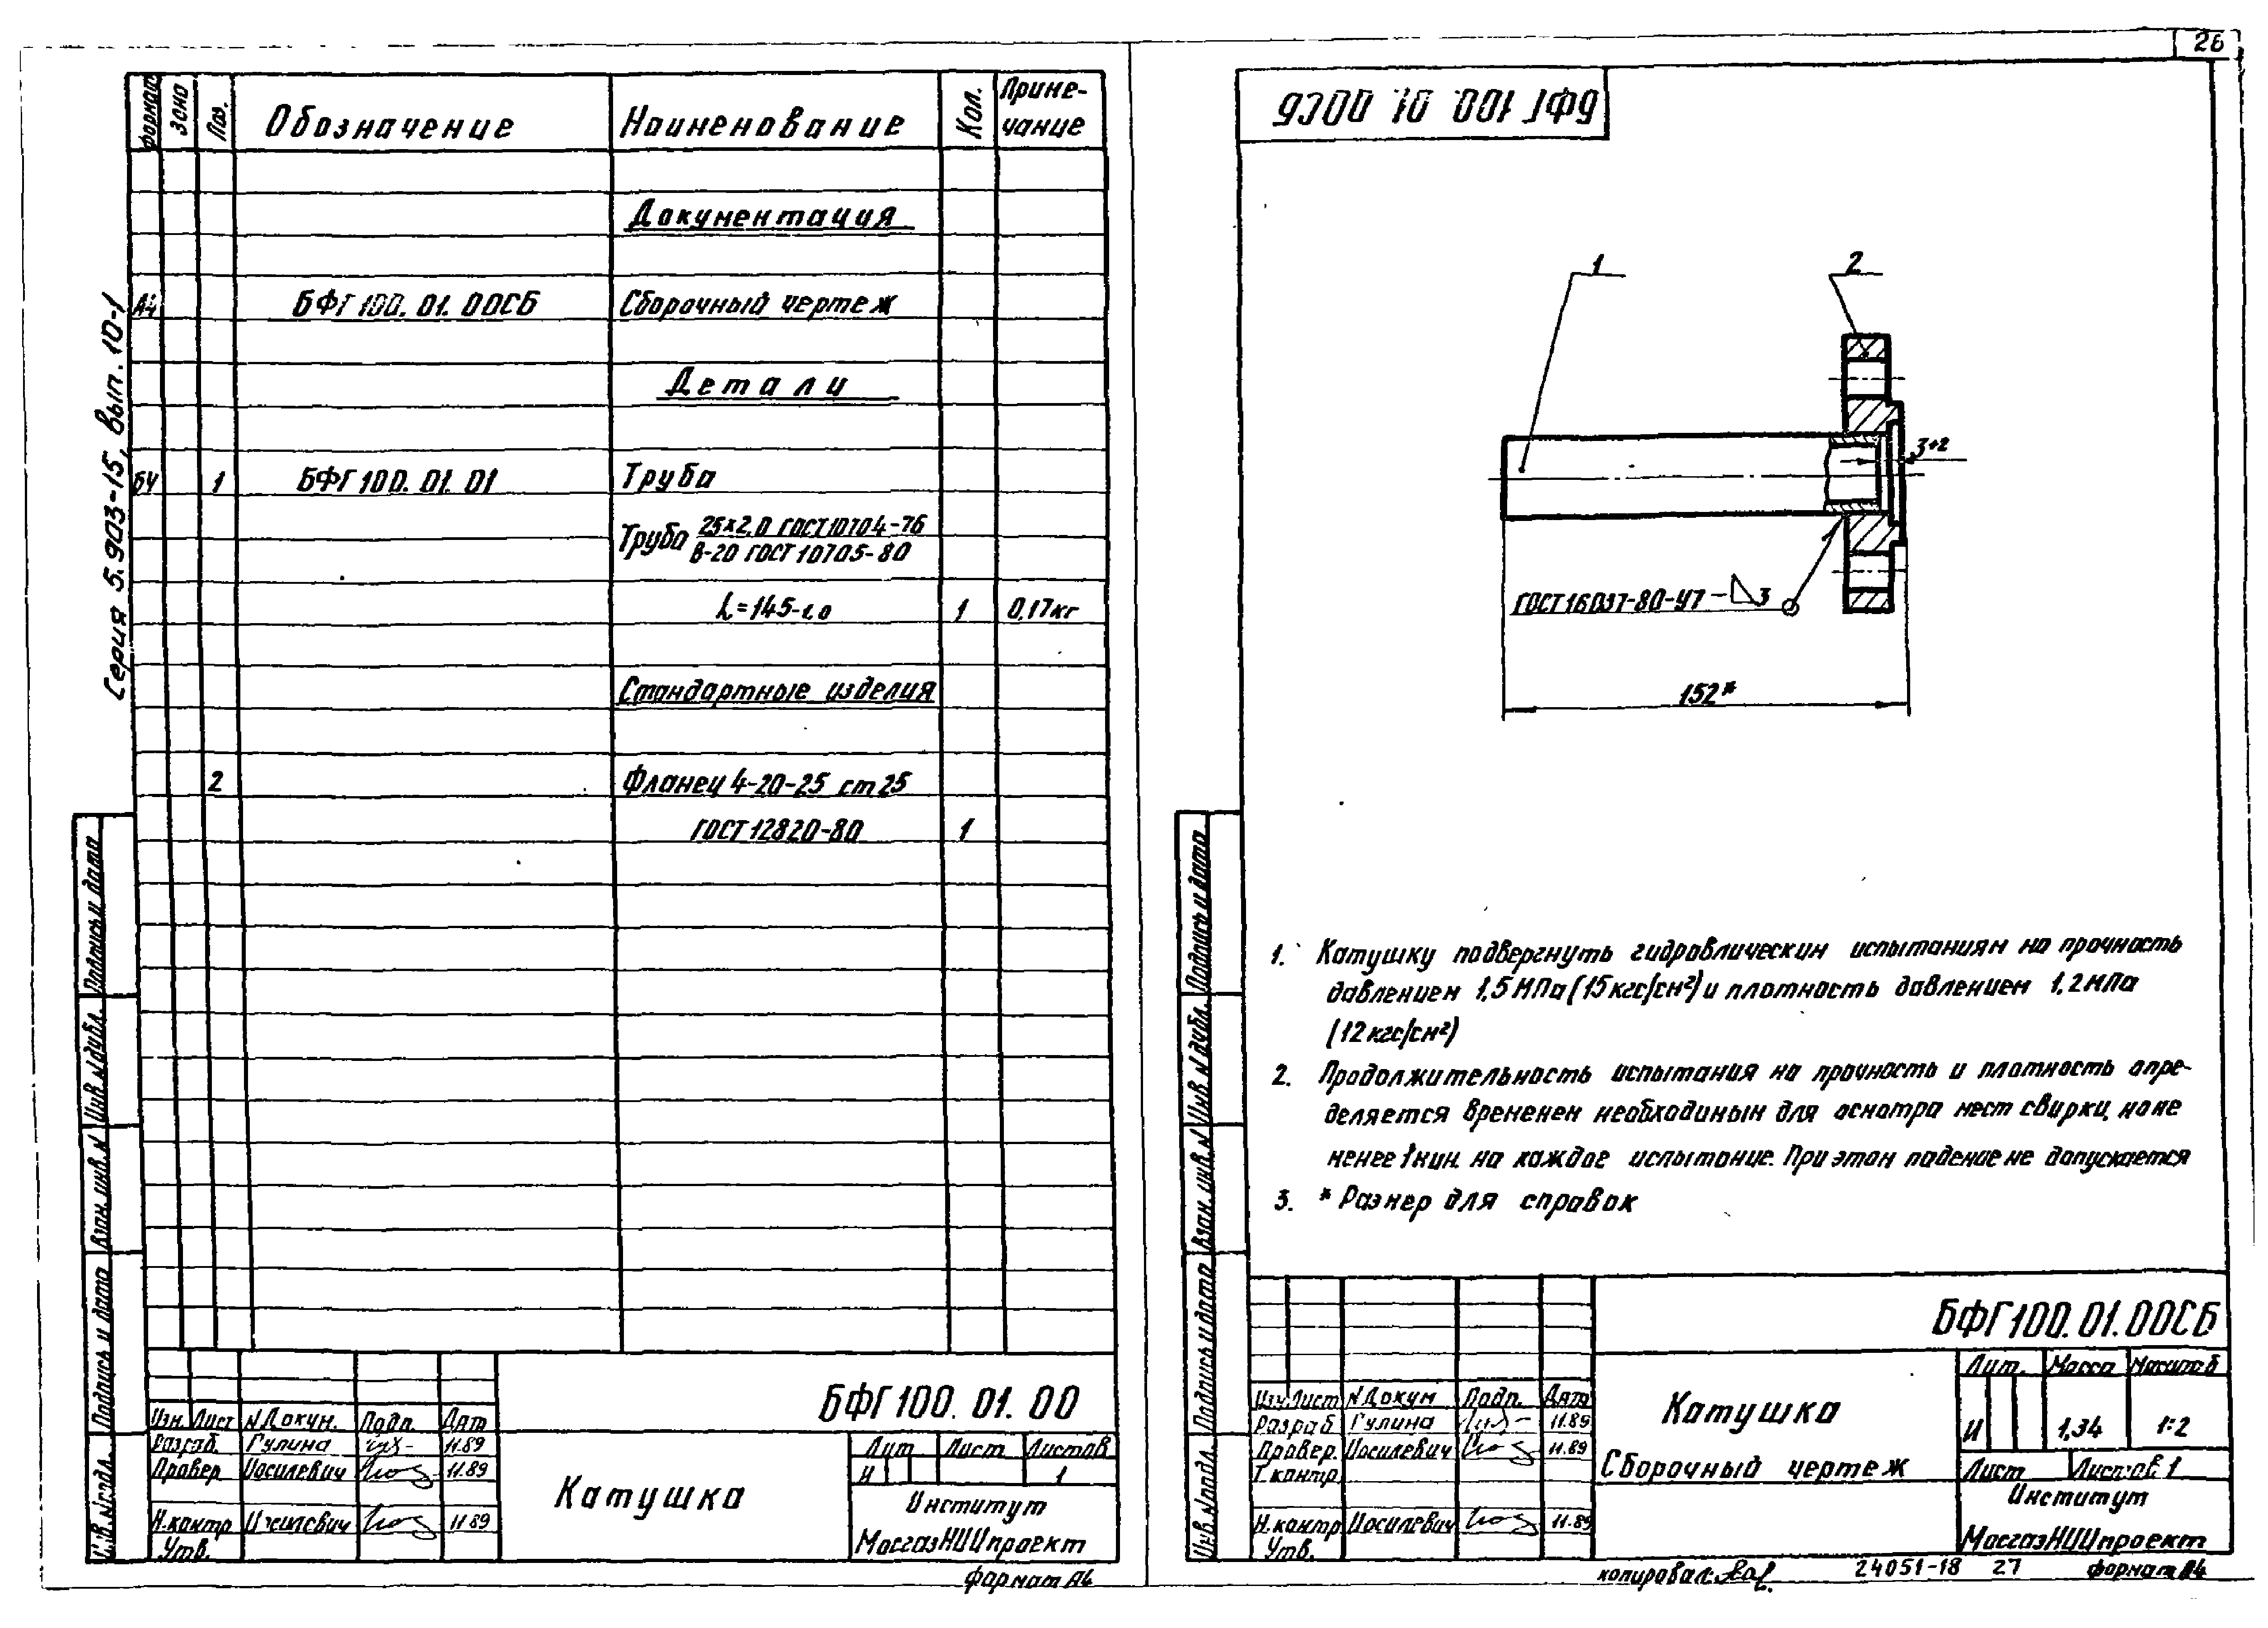 26
Серия 5.903-15, вып. 10-1
Формат Зона Поз. Обозначение Наименование Кол. Примечание
Документация
А4 БФГ 100. 01. 00СБ Сборочный чертеж
Детали
БЧ 1 БФГ 100. 01. 01 Труба
Труба 25×2,0 ГОСТ 10704-76
В-20 ГОСТ 10705-80
L=145-1,0 1 0,17кг
Стандартные изделия
2 Фланец 4-20-25 ст 25
ГОСТ 12820-80 1
Подпись и дата
Инв. N дубл.
Взам. инв. N
Подпись и дата
Инв. N подл.
БФГ 100. 01. 00
Изм. Лист N Докум. Подп. Дата
Разраб. Гулина 11.89
Провер. Иосилевич 11.89
Н.контр Иосилевич 11.89
Утв.
Катушка
Лит Лист Листов
И 1
Институт
МосгазНИИпроект
формат А4
БФГ 100. 01. 00СБ
1
2
3+2
ГОСТ 16037-80-У7-◺3
152*
1. Катушку подвергнуть гидравлическим испытаниям на прочность
давлением 1,5 МПа (15 кгс/см²) и плотность давлением 1,2 МПа
(12 кгс/см²)
2. Продолжительность испытания на прочность и плотность опре-
деляется временем необходимым для осмотра мест сварки, но не
менее 1 мин. на каждое испытание. При этом падение не допускается
3. * Размер для справок
Подпись и дата
Инв. N дубл.
Взам. инв. N
Подпись и дата
Инв. N подл.
БФГ 100. 01. 00СБ
Изм. Лист N Докум Подп. Дата
Разраб Гулина 11.89
Провер. Иосилевич 11.89
Т. контр.
Н. контр Иосилевич 11.89
Утв.
Катушка
Сборочный чертеж
Лит. Масса Масштаб
И 1,34 1:2
Лист Листов 1
Институт
МосгазНИИпроект
копировал: 24051-18 27 формат А4